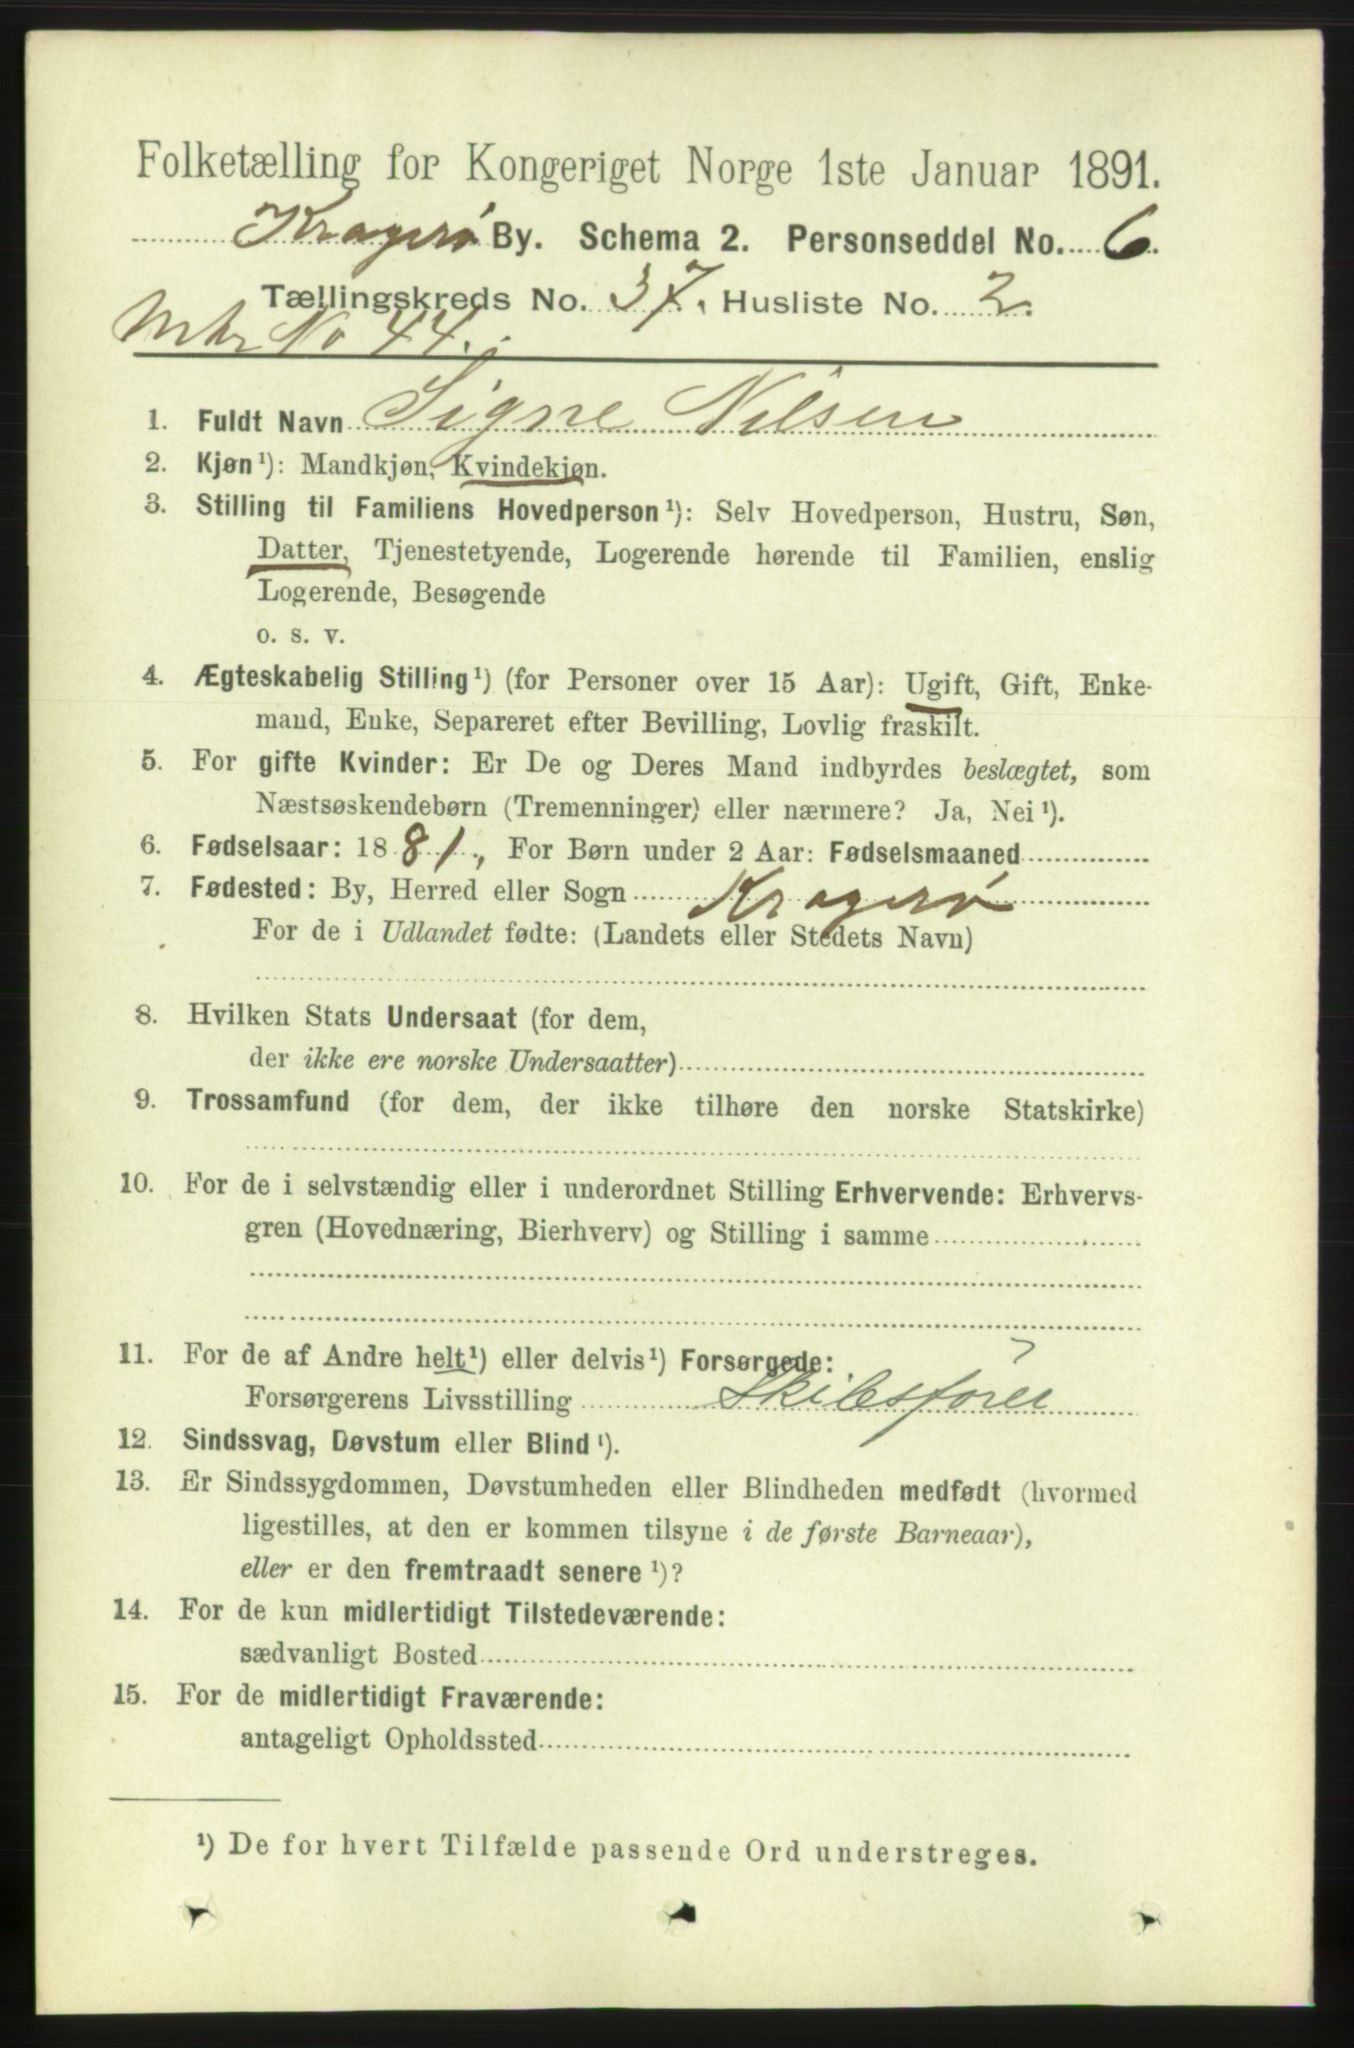 Folketælling for Kongeriget Norge 1ste Januar 1891.
Kragerø By. Schema 2. Personseddel No. 6.
Tællingskreds No. 37. Husliste No. 2.
Mtr No 44.
1. Fuldt Navn Signe Nilsen
2. Kjøn¹): Mandkjøn, Kvindekjøn.
3. Stilling til Familiens Hovedperson¹): Selv Hovedperson, Hustru, Søn,
Datter, Tjenestetyende, Logerende hørende til Familien, enslig
Logerende, Besøgende
o. s. v.
4. Ægteskabelig Stilling¹) (for Personer over 15 Aar): Ugift, Gift, Enke-
mand, Enke, Separeret efter Bevilling, Lovlig fraskilt.
5. For gifte Kvinder: Er De og Deres Mand indbyrdes beslægtet, som
Næstsøskendebørn (Tremenninger) eller nærmere? Ja, Nei¹).
6. Fødselsaar: 1881, For Børn under 2 Aar: Fødselsmaaned
7. Fødested: By, Herred eller Sogn Kragerø
For de i Udlandet fødte: (Landets eller Stedets Navn)
8. Hvilken Stats Undersaat (for dem,
der ikke ere norske Undersaatter)
9. Trossamfund (for dem, der ikke tilhøre den norske Statskirke)
10. For de i selvstændig eller i underordnet Stilling Erhvervende: Erhvervs-
gren (Hovednæring, Bierhverv) og Stilling i samme
11. For de af Andre helt¹) eller delvis¹) Forsørgede:
Forsørgerens Livsstilling Skibsfører
12. Sindssvag, Døvstum eller Blind¹).
13. Er Sindssygdommen, Døvstumheden eller Blindheden medfødt (hvormed
ligestilles, at den er kommen tilsyne i de første Barneaar),
eller er den fremtraadt senere¹)?
14. For de kun midlertidigt Tilstedeværende:
sædvanligt Bosted
15. For de midlertidigt Fraværende:
antageligt Opholdssted
¹) De for hvert Tilfælde passende Ord understreges.